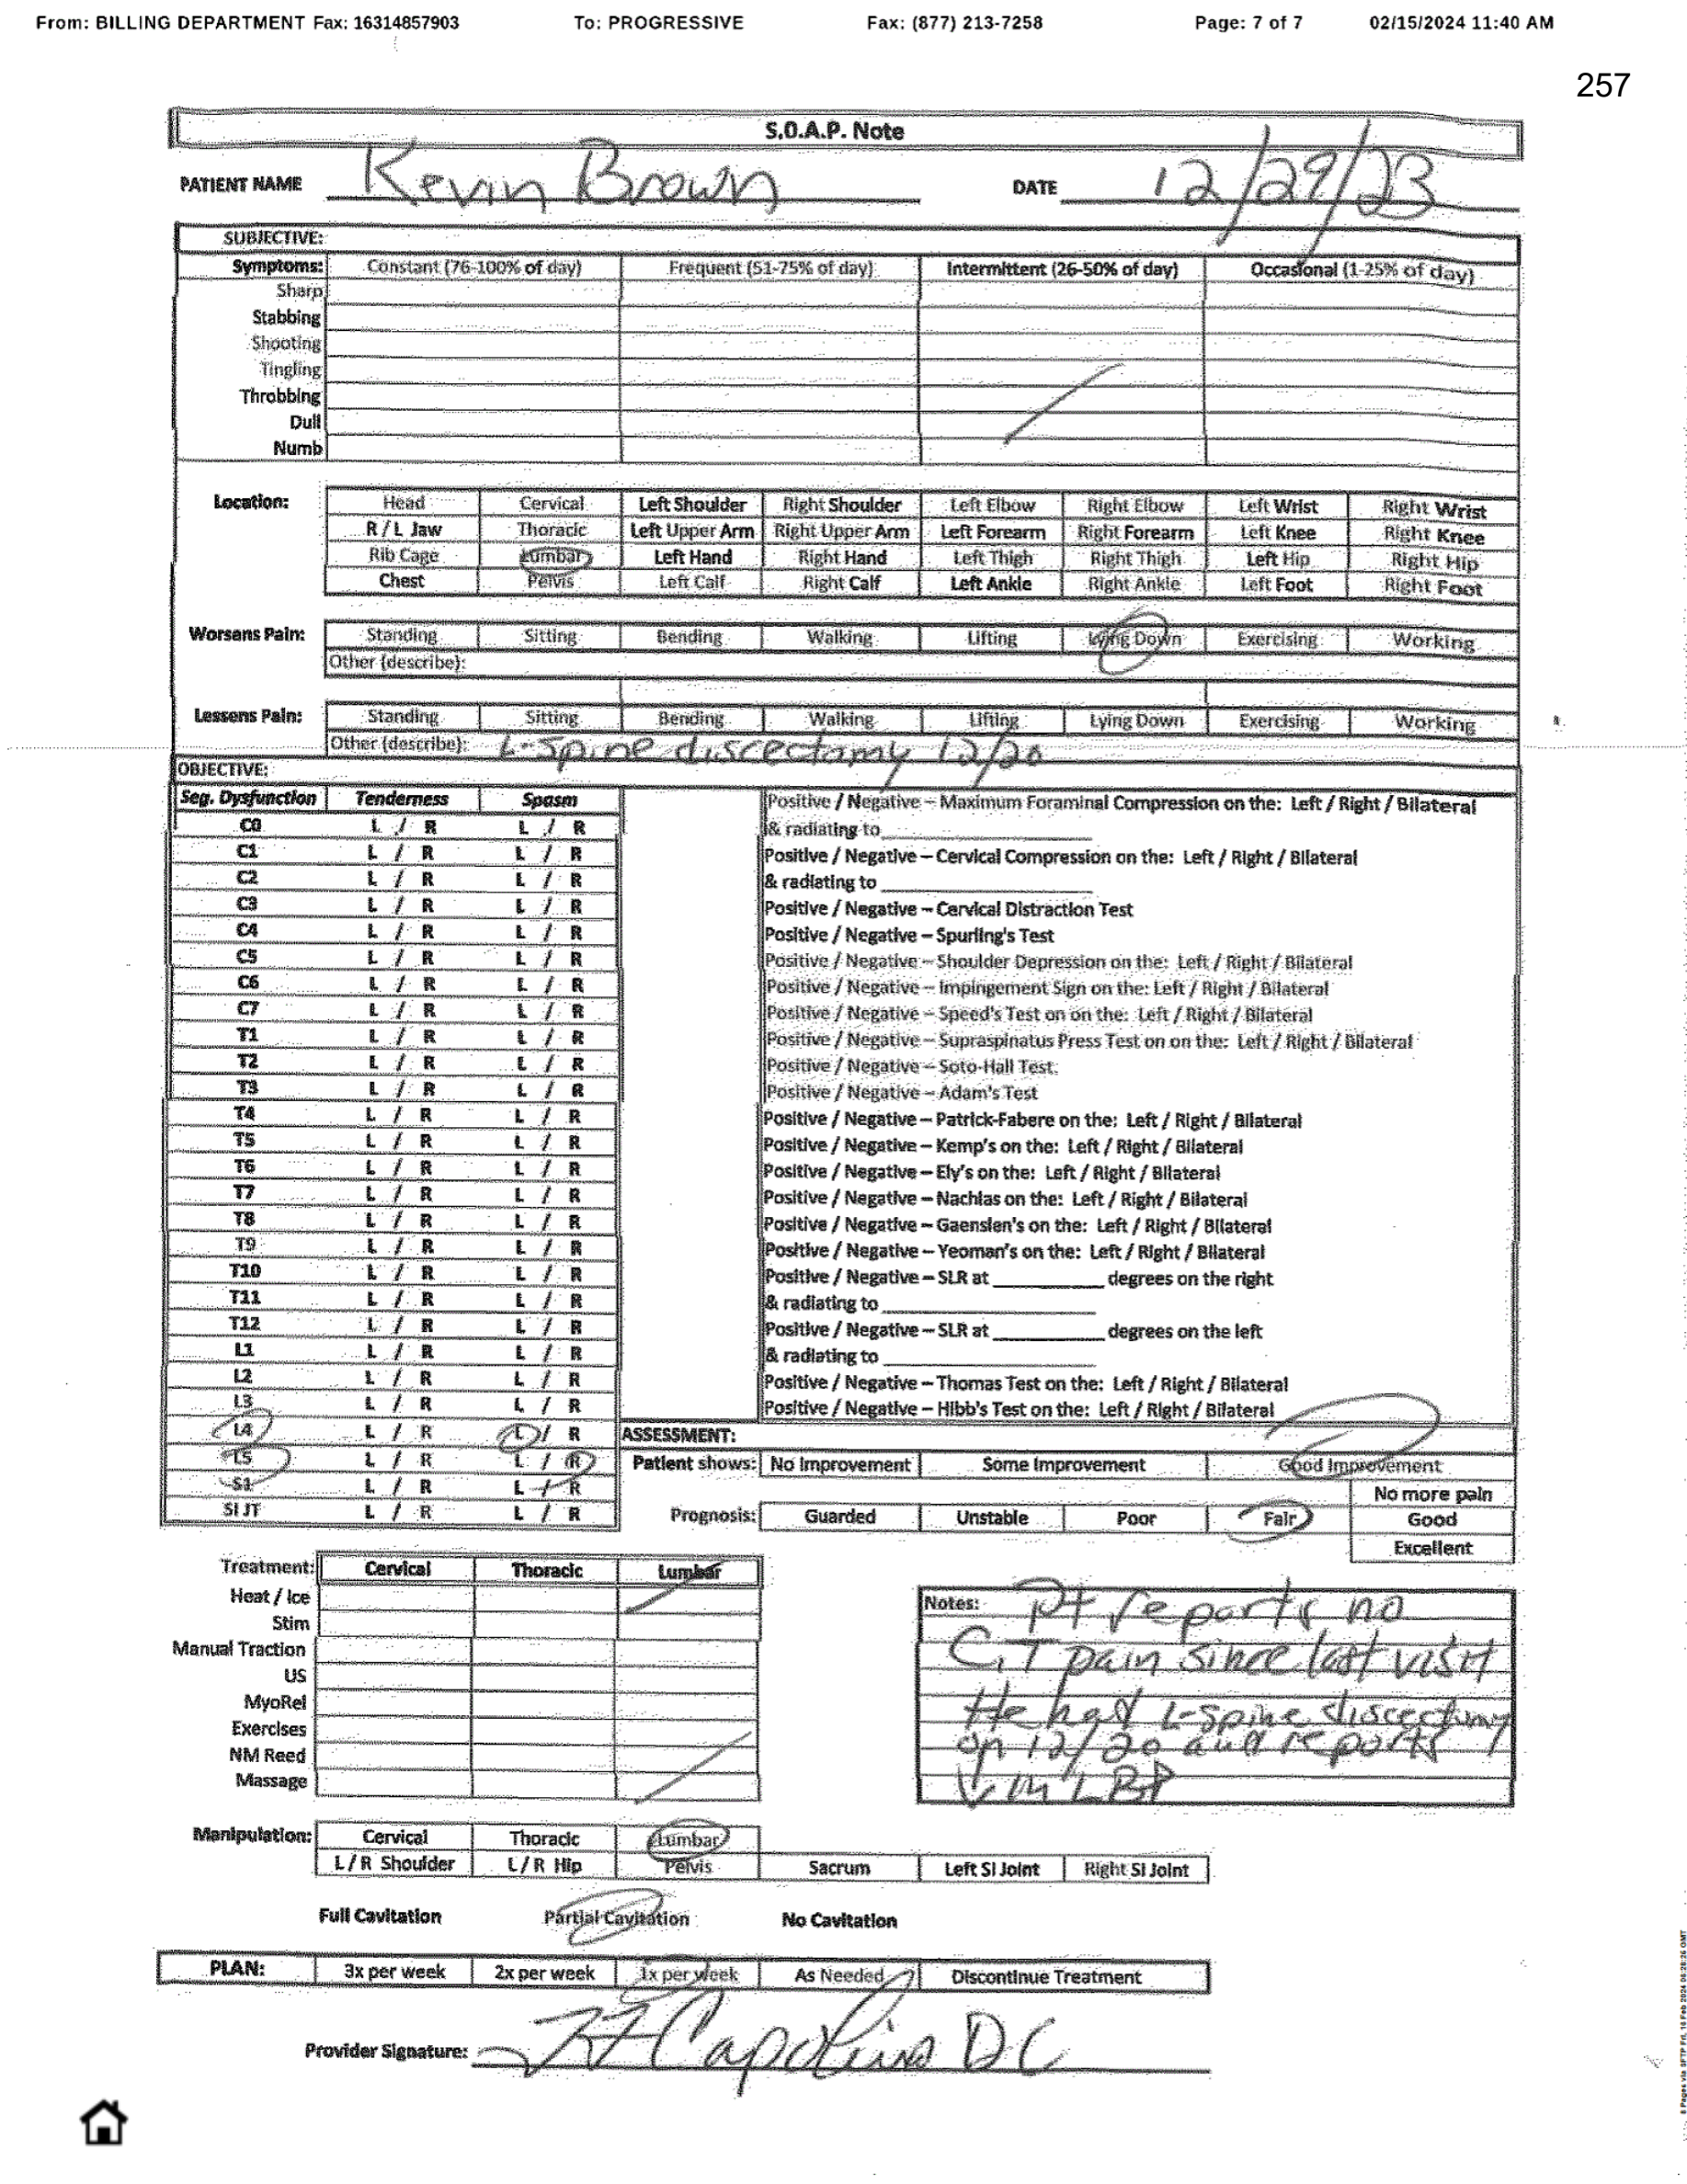 From: BILLING DEPARTMENT Fax: 16314857903 To: PROGRESSIVE Fax: (877) 213-7258 Page: 7 of 7 02/15/2024 11:40 AM
257
S.O.A.P. Note
PATIENT NAME Kevin Brown DATE 12/29/23
SUBJECTIVE:
Symptoms: Constant (76-100% of day) Frequent (51-75% of day) Intermittent (26-50% of day) Occasional (1-25% of day)
Sharp
Stabbing
Shooting
Tingling
Throbbing
Dull
Numb
Location: Head Cervical Left Shoulder Right Shoulder Left Elbow Right Elbow Left Wrist Right Wrist
R / L Jaw Thoracic Left Upper Arm Right Upper Arm Left Forearm Right Forearm Left Knee Right Knee
Rib Cage Lumbar Left Hand Right Hand Left Thigh Right Thigh Left Hip Right Hip
Chest Pelvis Left Calf Right Calf Left Ankle Right Ankle Left Foot Right Foot
Worsens Pain: Standing Sitting Bending Walking Lifting Lying Down Exercising Working
Other (describe):
Lessens Pain: Standing Sitting Bending Walking Lifting Lying Down Exercising Working
Other (describe): L-Spine discectomy 12/20
OBJECTIVE:
Seg. Dysfunction Tenderness Spasm Positive / Negative – Maximum Foraminal Compression on the: Left / Right / Bilateral
C0 L / R L / R & radiating to
C1 L / R L / R Positive / Negative – Cervical Compression on the: Left / Right / Bilateral
C2 L / R L / R & radiating to
C3 L / R L / R Positive / Negative – Cervical Distraction Test
C4 L / R L / R Positive / Negative – Spurling's Test
C5 L / R L / R Positive / Negative – Shoulder Depression on the: Left / Right / Bilateral
C6 L / R L / R Positive / Negative – Impingement Sign on the: Left / Right / Bilateral
C7 L / R L / R Positive / Negative – Speed's Test on on the: Left / Right / Bilateral
T1 L / R L / R Positive / Negative – Supraspinatus Press Test on on the: Left / Right / Bilateral
T2 L / R L / R Positive / Negative – Soto-Hall Test
T3 L / R L / R Positive / Negative – Adam's Test
T4 L / R L / R Positive / Negative – Patrick-Fabere on the: Left / Right / Bilateral
T5 L / R L / R Positive / Negative – Kemp's on the: Left / Right / Bilateral
T6 L / R L / R Positive / Negative – Ely's on the: Left / Right / Bilateral
T7 L / R L / R Positive / Negative – Nachlas on the: Left / Right / Bilateral
T8 L / R L / R Positive / Negative – Gaenslen's on the: Left / Right / Bilateral
T9 L / R L / R Positive / Negative – Yeoman's on the: Left / Right / Bilateral
T10 L / R L / R Positive / Negative – SLR at degrees on the right
T11 L / R L / R & radiating to
T12 L / R L / R Positive / Negative – SLR at degrees on the left
L1 L / R L / R & radiating to
L2 L / R L / R Positive / Negative – Thomas Test on the: Left / Right / Bilateral
L3 L / R L / R Positive / Negative – Hibb's Test on the: Left / Right / Bilateral
L4 L / R L / R ASSESSMENT:
L5 L / R L / R Patient shows: No Improvement Some Improvement Good Improvement
S1 L / R L / R No more pain
SI JT L / R L / R Prognosis: Guarded Unstable Poor Fair Good
Excellent
Treatment: Cervical Thoracic Lumbar
Heat / Ice
Stim
Manual Traction
US
MyoRel
Exercises
NM Reed
Massage
Notes: Pt reports no
C,T pain since last visit
He had L-spine discectomy
on 12/20 and reports
↓ in LBP
Manipulation: Cervical Thoracic Lumbar
L / R Shoulder L / R Hip Pelvis Sacrum Left SI Joint Right SI Joint
Full Cavitation Partial Cavitation No Cavitation
PLAN: 3x per week 2x per week 1x per week As Needed Discontinue Treatment
Provider Signature: DC